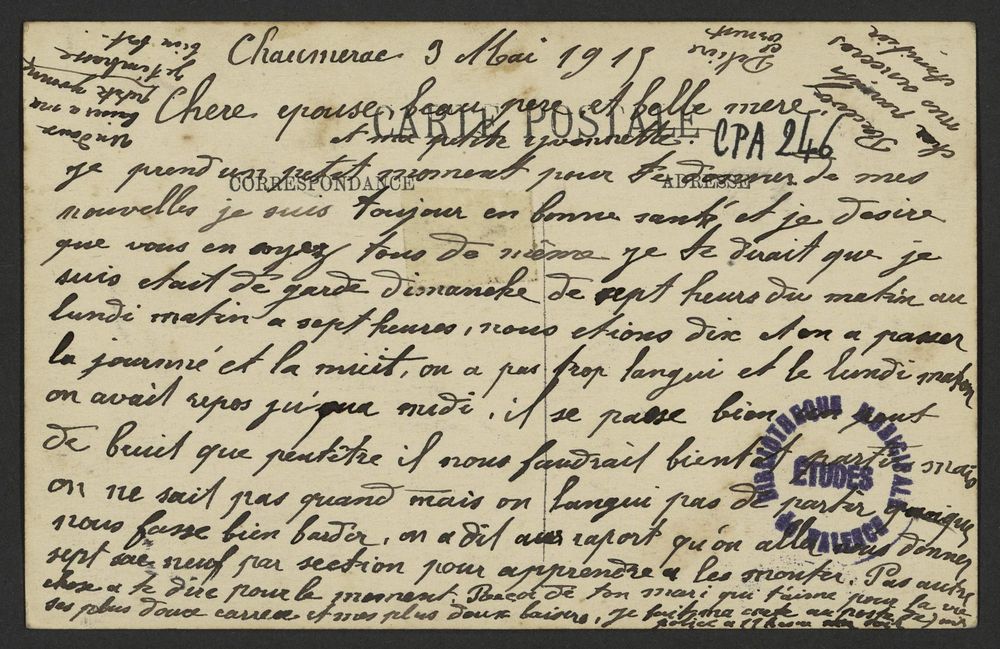 Chaumerac 3 Mai 1915
Chere epouse, beau pere et belle mere
et ma petite yvonnette.
CARTE POSTALE
CPA 246
CORRESPONDANCE
ADRESSE
je prend un petit moment pour te donner de mes
nouvelles je suis toujour en bonne santé et je desire
que vous en soyez tous de même je te dirait que je
suis etait de garde dimanche de sept heurs du matin au
lundi matin a sept heures, nous etions dix et on a passer
la journné et la nuit, on a pas trop langui et le lundi matin
on avait repos ju'qua midi, il se passe bien un pout
de bruit que peutêtre il nous faudrait bientot partir mais
on ne sait pas quand mais on langui pas de partir quoique
nous fasse bien barder, on a dit au raport qu'on allai nous donner
sept sac neuf par section pour apprendre a les monter. Pas autre
chose a te dire pour le moment. Reçoi de ton mari qui t'aime pour la vie
ses plus douce caresse et mes plus doux baisers, je fait ma carte au poste de
police a 11 heures du soir
BIBLIOTHEQUE MUNICIPALE
ÉTUDES
de VALENCE